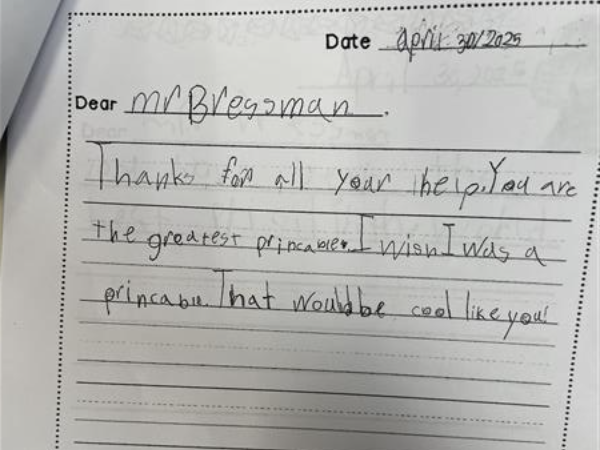 Date april 30/2025
Dear mr Bressman.
Thanks for all your help. You are
the greatest princable. I wish I was a
princable. That would be cool like you!